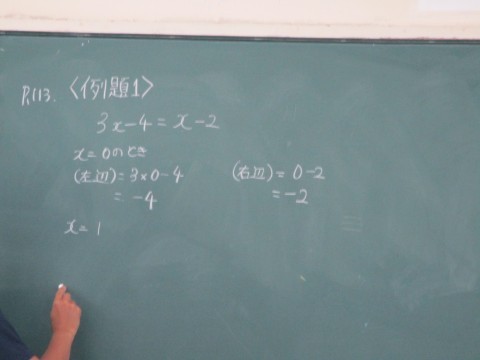 P.113. 〈例題1〉
3x-4=x-2
x=0のとき
(左辺)=3×0-4 (右辺)=0-2
=-4 =-2
x=1